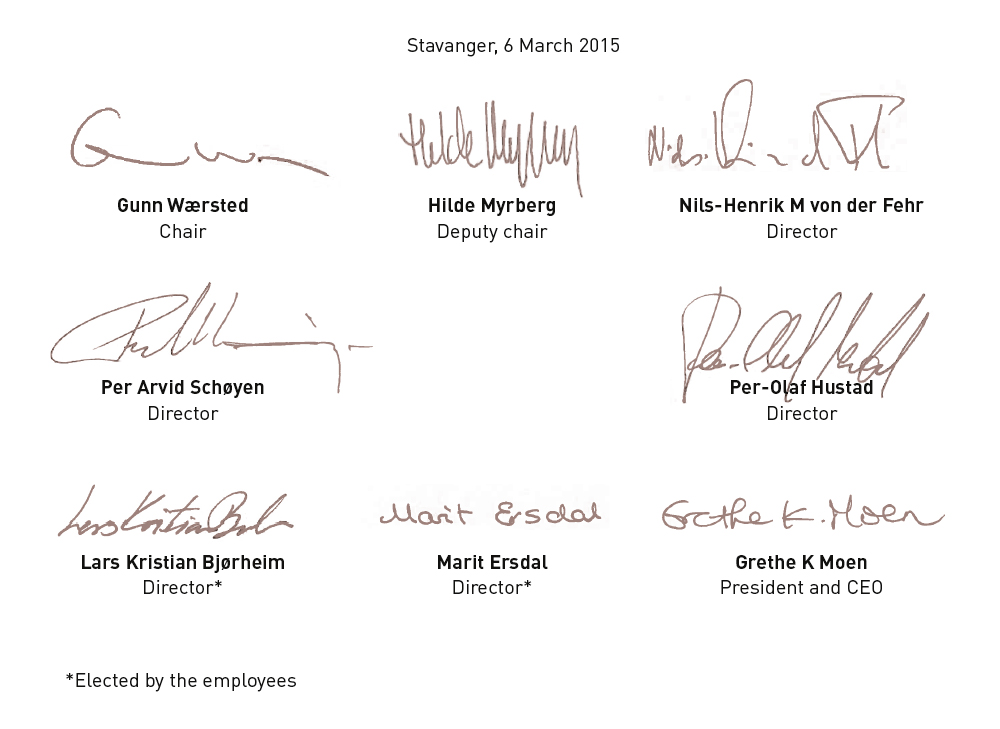 Stavanger, 6 March 2015
Gunn Wærsted
Chair
Hilde Myrberg
Deputy chair
Nils-Henrik M von der Fehr
Director
Per Arvid Schøyen
Director
Per-Olaf Hustad
Director
Lars Kristian Bjørheim
Director*
Marit Ersdal
Marit Ersdal
Director*
Grethe K. Moen
Grethe K Moen
President and CEO
*Elected by the employees